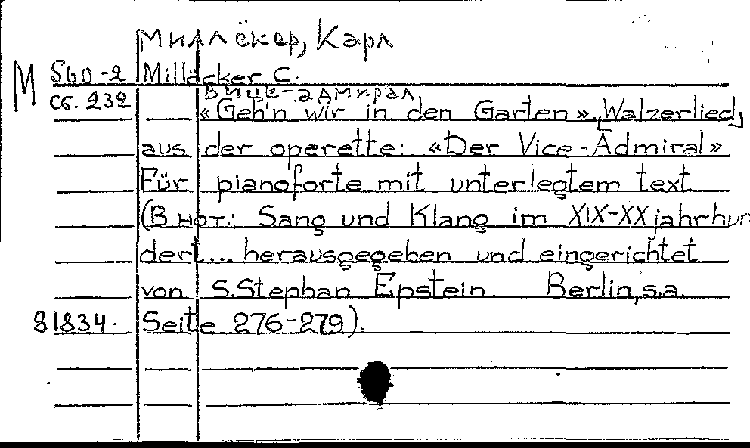 Миллёкер, Карл
M 560-2 Milläcker C.
Вице-адмирал
сб. 232 — «Geh'n wir in den Garten», [Walzerlied]
aus der operette: «Der Vice-Admiral»
Für pianoforte mit unterlegtem text
(В нот.: Sang und Klang im XIX-XX jahrhun
dert... herausgegeben und eingerichtet
von S.Stephan Epstein Berlin, s.a.
81834. Seite 276-279).